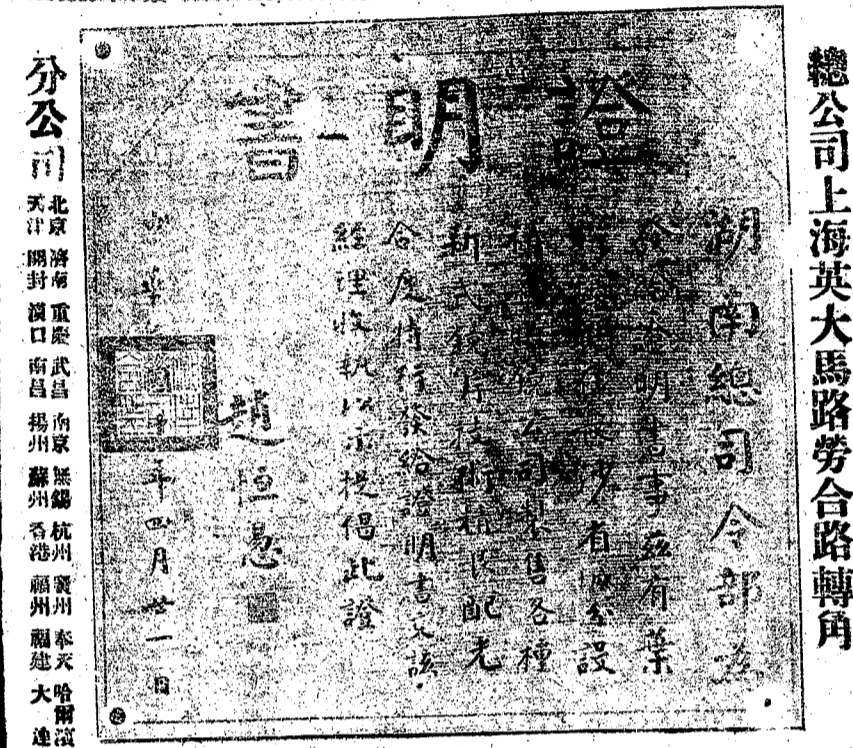 總公司上海英大馬路勞合路轉角
證明書
湖南總司令部為
發給證明書事茲有葉
長沙省城分設
精 公司製售各種
新式鏡片技術精良配光
合度特行發給證明書交該
經理收執以示提倡此證
趙恒惕
中華 年四月廿一日
分公司
北京 濟南 重慶 武昌 南京 無錫 杭州 襄州 奉天 哈爾濱
天津 開封 漢口 南昌 揚州 蘇州 香港 福州 福建 大連